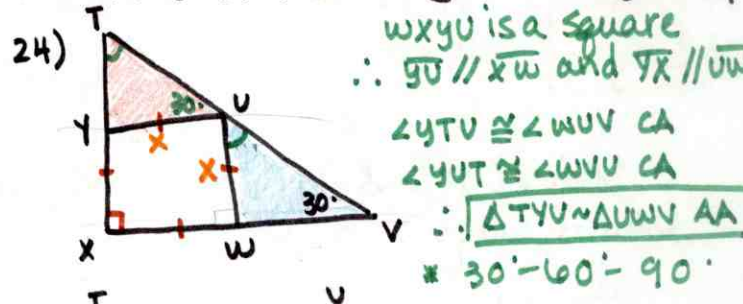 24)
T
30°
U
Y
X
X
30°
X
W
V
T
U
WXYU is a square
∴ YU // XW and YX // UW
∠YTU ≅ ∠WUV CA
∠YUT ≅ ∠WVU CA
∴ △TYU ~ △UWV AA
* 30°-60°-90°